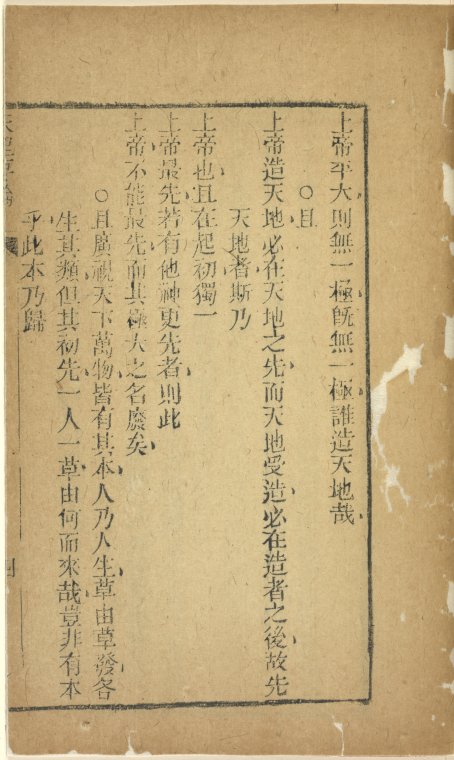 上帝平大則無一極旣無一極誰造天地哉
○且
上帝造天地必在天地之先而天地受造必在造者之後故先
天地者斯乃
上帝也且在起初獨一
上帝最先若有他神更先者則此
上帝不能最先而其極大之名廢矣
○且廣觀天下萬物皆有其本人乃人生草由草發各
生其類但其初先一人一草由何而來哉豈非有本
乎此本乃歸